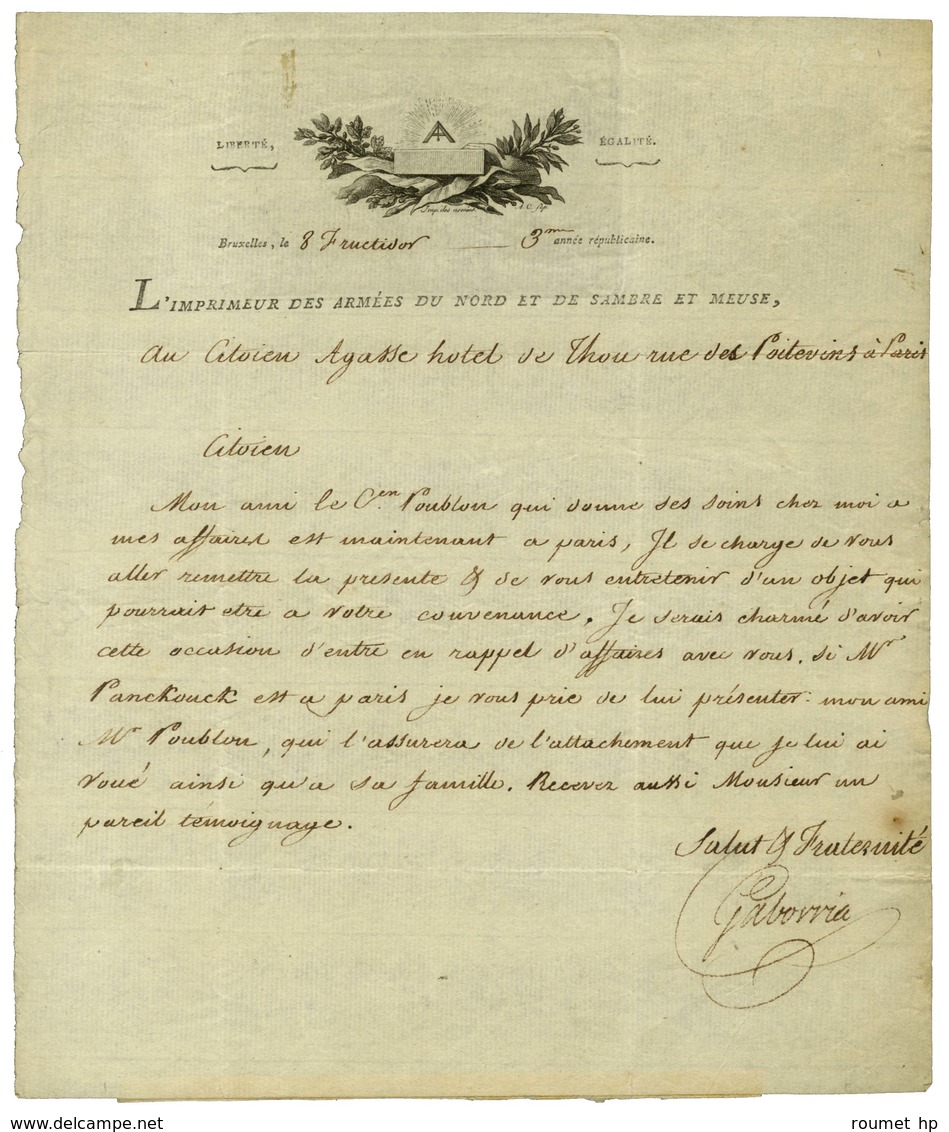 LIBERTÉ, ÉGALITÉ.
Imp. des armées.
Bruxelles, le 8 Fructidor 3me année républicaine.
L'IMPRIMEUR DES ARMÉES DU NORD ET DE SAMBRE ET MEUSE,
au Citoien Agasse hotel de Thou rue des Poitevins à Paris
Citoien
Mon ami le Cen. Poublon qui donne ses soins chez moi a
mes affaires est maintenant a paris, Il se charge de vous
aller remettre la presente & de vous entretenir d'un objet qui
pourrait etre a votre convenance. Je serais charmé d'avoir
cette occasion d'entre en rappel d'affaires avec vous. si Mr
Panckouck est a paris je vous prie de lui présenter mon ami
Mr Poublon, qui l'assurera de l'attachement que je lui ai
voué ainsi qu'a sa famille. Recevez aussi Monsieur un
pareil témoignage.
Salut & Fraternité
Gaborria
www.delcampe.net
roumet hp